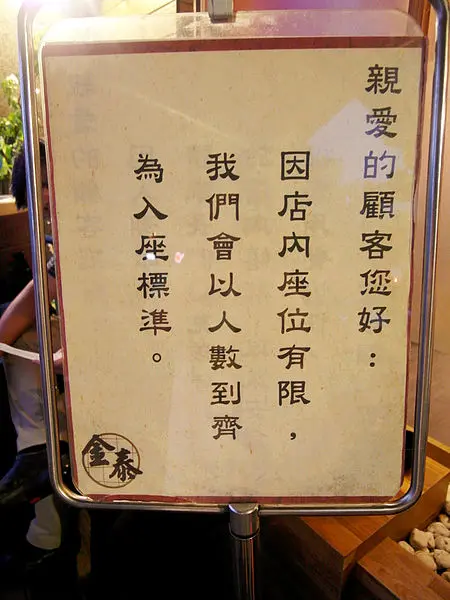 親愛的顧客您好：
因店內座位有限，
我們會以人數到齊
為入座標準。
金泰